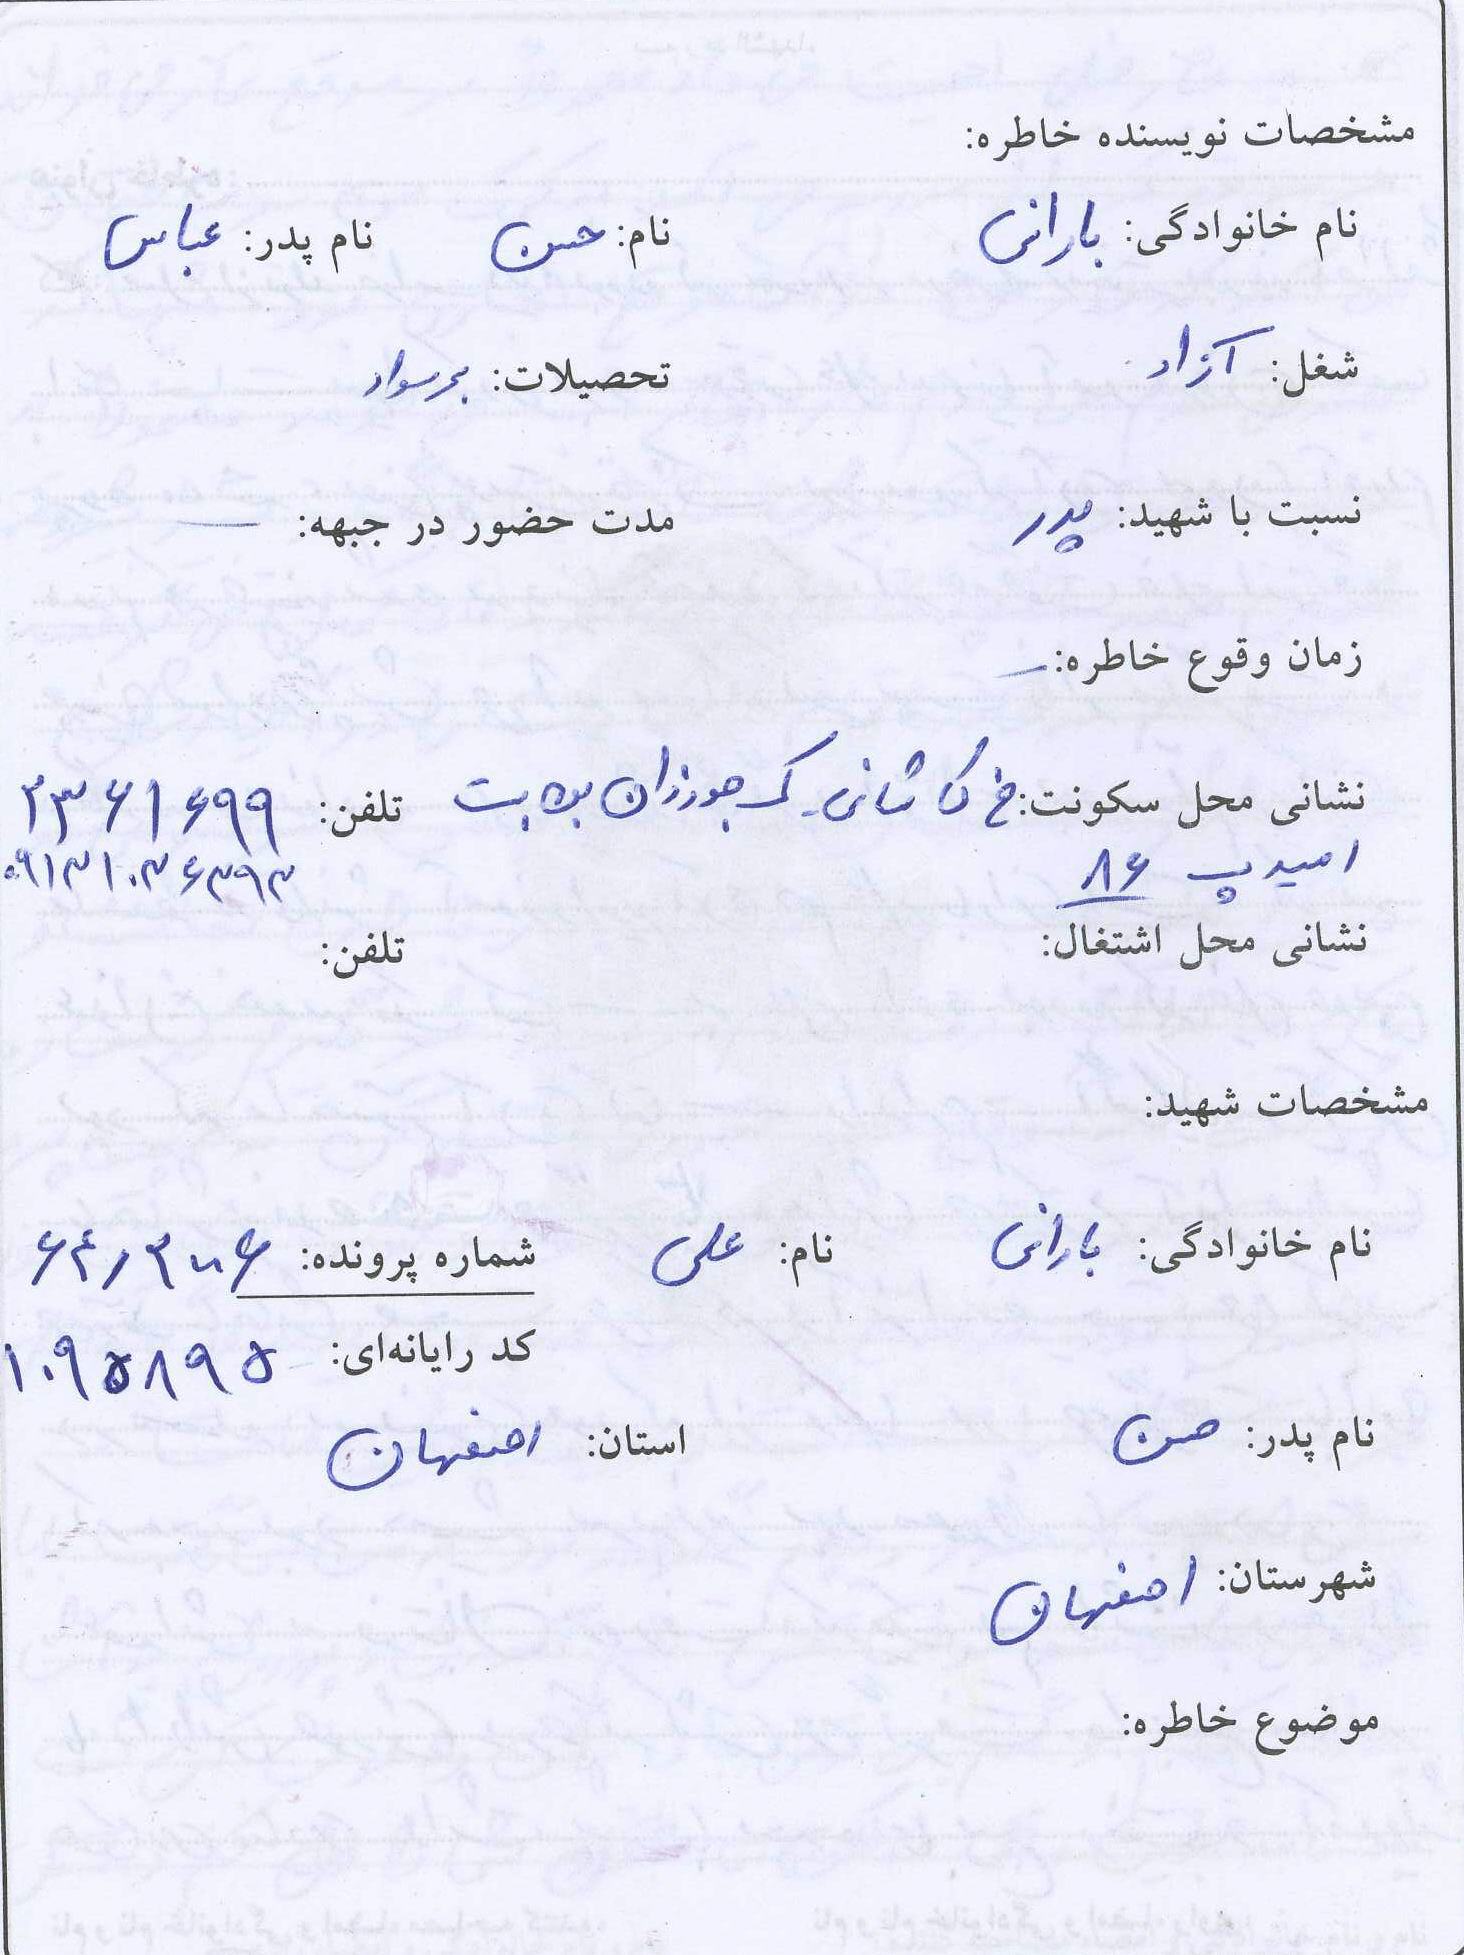 مشخصات نویسنده خاطره:
نام خانوادگی: بارانی نام: حسن نام پدر: عباس
شغل: آزاد تحصیلات: بیسواد
نسبت با شهید: پدر مدت حضور در جبهه: —
زمان وقوع خاطره: —
نشانی محل سکونت: خ کاشانی ک جوزدان بن بست تلفن: ۲۳۶۱۶۹۹
امید پ ۸۶ ۰۹۱۳۱۰۳۶۳۹۳
نشانی محل اشتغال: تلفن:
مشخصات شهید:
نام خانوادگی: بارانی نام: علی شماره پرونده:
کد رایانه‌ای: ۱۰۹۵۸۹۵
نام پدر: حسن استان: اصفهان
شهرستان: اصفهان
موضوع خاطره: